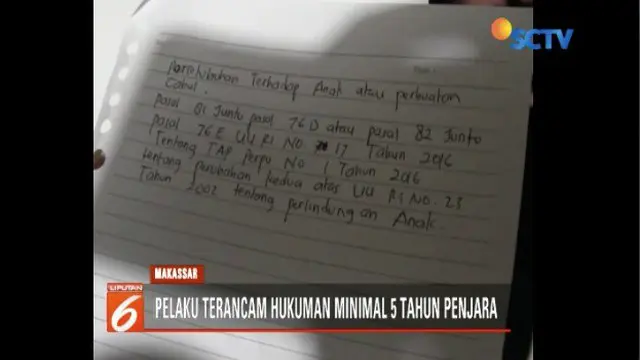 SCTV
Persetubuhan Terhadap Anak atau perbuatan
Cabul.
pasal 81 Junto pasal 76 D atau pasal 82 Junto
pasal 76 E UU RI NO 17 Tahun 2016
Tentang TAP Perpu No 1 Tahun 2016
tentang perubahan kedua atas UU RI NO. 23
Tahun 2002 tentang perlindungan Anak.
MAKASSAR
LIPUTAN
6
PELAKU TERANCAM HUKUMAN MINIMAL 5 TAHUN PENJARA